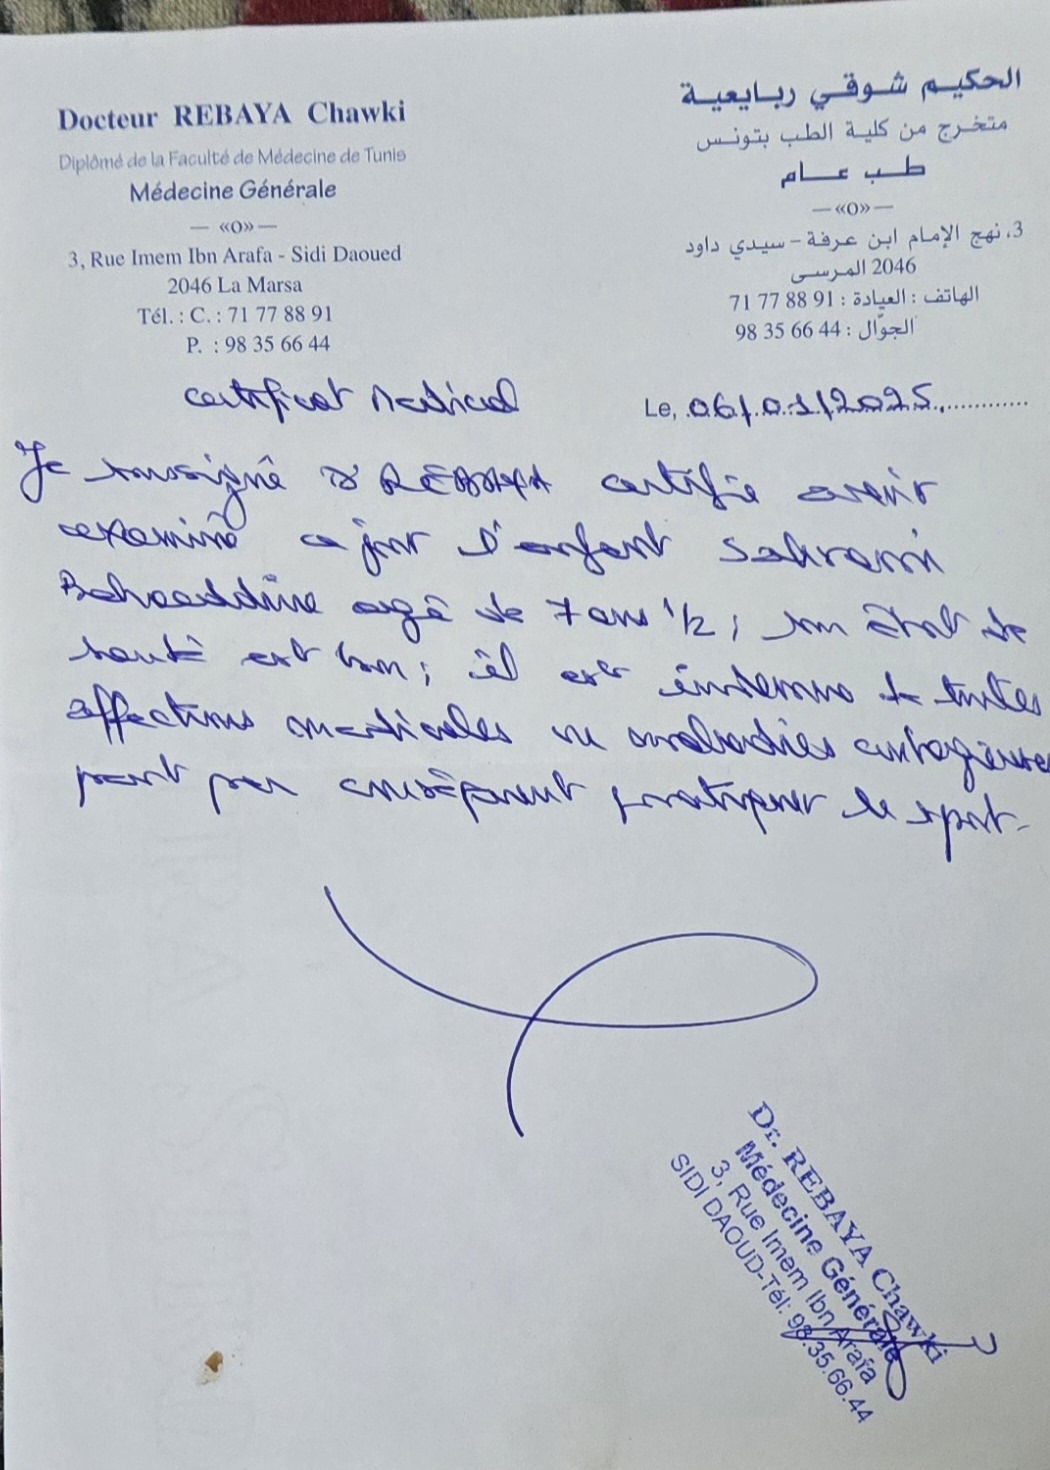 Docteur REBAYA Chawki
Diplômé de la Faculté de Médecine de Tunis
Médecine Générale
— «O» —
3, Rue Imem Ibn Arafa - Sidi Daoued
2046 La Marsa
Tél. : C. : 71 77 88 91
P. : 98 35 66 44
الحكيم شوقي ربايعية
متخرج من كلية الطب بتونس
طب عام
— «O» —
3، نهج الإمام ابن عرفة - سيدي داود
2046 المرسى
الهاتف : العيادة : 91 88 77 71
الجوّال : 44 66 35 98
Certificat Médical
Le, 06/01/2025
Je soussigné Dr REBAYA certifie avoir
examiné ce jour l'enfant Sahraoui
Bahaeddine agé de 7 ans 1/2 ; son état de
santé est bon ; il est indemne de toutes
affections médicales ou maladies contagieuses
peut par conséquent pratiquer le sport.
Dr. REBAYA Chawki
Médecine Générale
3, Rue Imem Ibn Arafa
SIDI DAOUD-Tél: 98.35.66.44